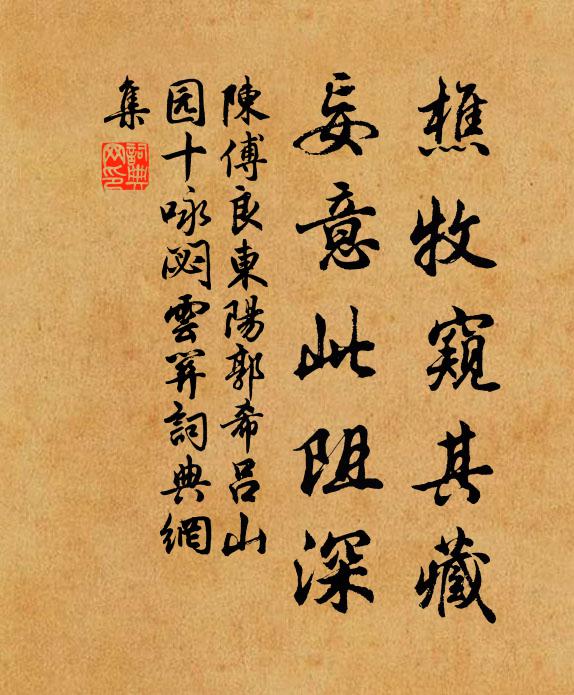 樵牧窺其藏
妄意此阻深
陳傅良東陽郭希呂山
园十咏閟雲詞典網
集
詞典网印